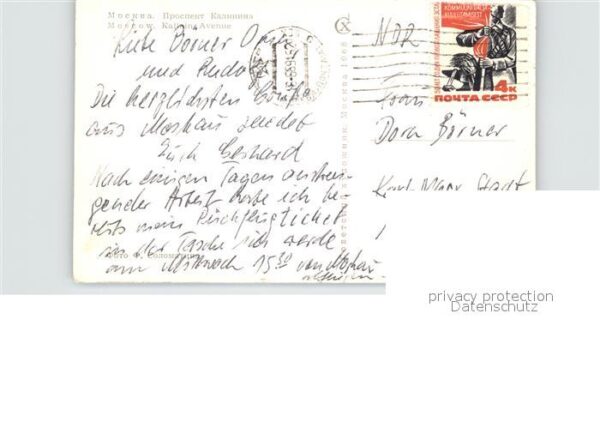 Москва. Проспект Калинина
Moscow. Kalinin Avenue
Liebe Börner Omi
und Rudo
Die herzlichsten Grüße
aus Moskau sendet
Euch Gerhard
Nach einigen Tagen anstren-
gender Arbeit habe ich be-
reits mein Rückflugticket
in der Tasche ich werde
am Mittwoch 15.30 von Moskau
Фото Ф. Соломатина
Советский художник. Москва 1968
DDR
Frau
Dora Börner
Karl-Marx-Stadt
4к
ПОЧТА СССР
privacy protection
Datenschutz